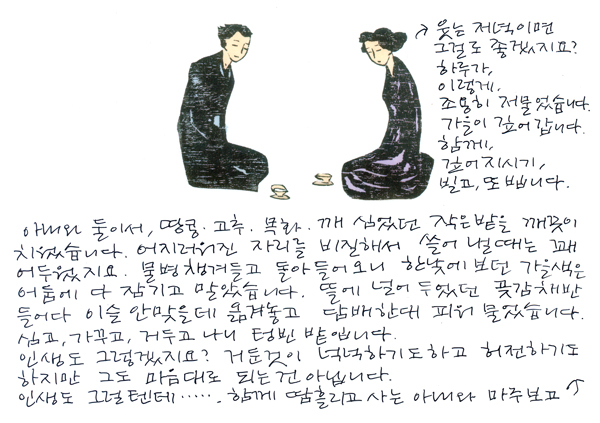 아내와 둘이서, 땅콩. 고추. 목화. 깨 심었던 작은밭을 깨끗이
치웠습니다. 어지러워진 자리를 비질해서 쓸어 낼때는 꽤
어두웠지요. 물병챙겨들고 돌아들어오니 한낮에 보던 가을색은
어둠에 다 잠기고 말았습니다. 뜰에 널어 두었던 풋감채반
들어다 이슬 안맞을데 옮겨놓고 담배한대 피워 물었습니다.
심고, 가꾸고, 거두고 나니 텅빈 밭입니다.
인생도 그렇겠지요? 거둔것이 넉넉하기도하고 허전하기도
하지만 그도 마음대로 되는건 아닙니다.
인생도 그럴텐데……. 함께 땀흘리고 사는 아내와 마주보고 ↑
→ 웃는 저녁이면
그걸로 좋겠지요?
하루가,
이렇게,
조용히 저물었습니다.
가을이 깊어갑니다.
함께,
깊어지시기,
빌고, 또 빕니다.